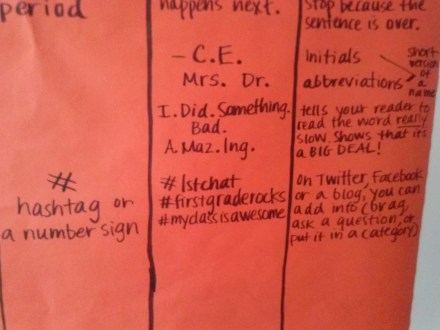 period
happens next.
stop because the
sentence is over.
- C.E.
Mrs. Dr.
Initials
abbreviations
short
version
of a
name
I. Did. Something.
Bad.
A. Maz. Ing.
tells your reader to
read the word really
slow. Shows that it's
a BIG DEAL!
#
hashtag or
a number sign
#1stchat
#firstgraderocks
#myclassisawesome
On Twitter, Facebook
or a blog, you can
add info (brag,
ask a question, or
put it in a category)